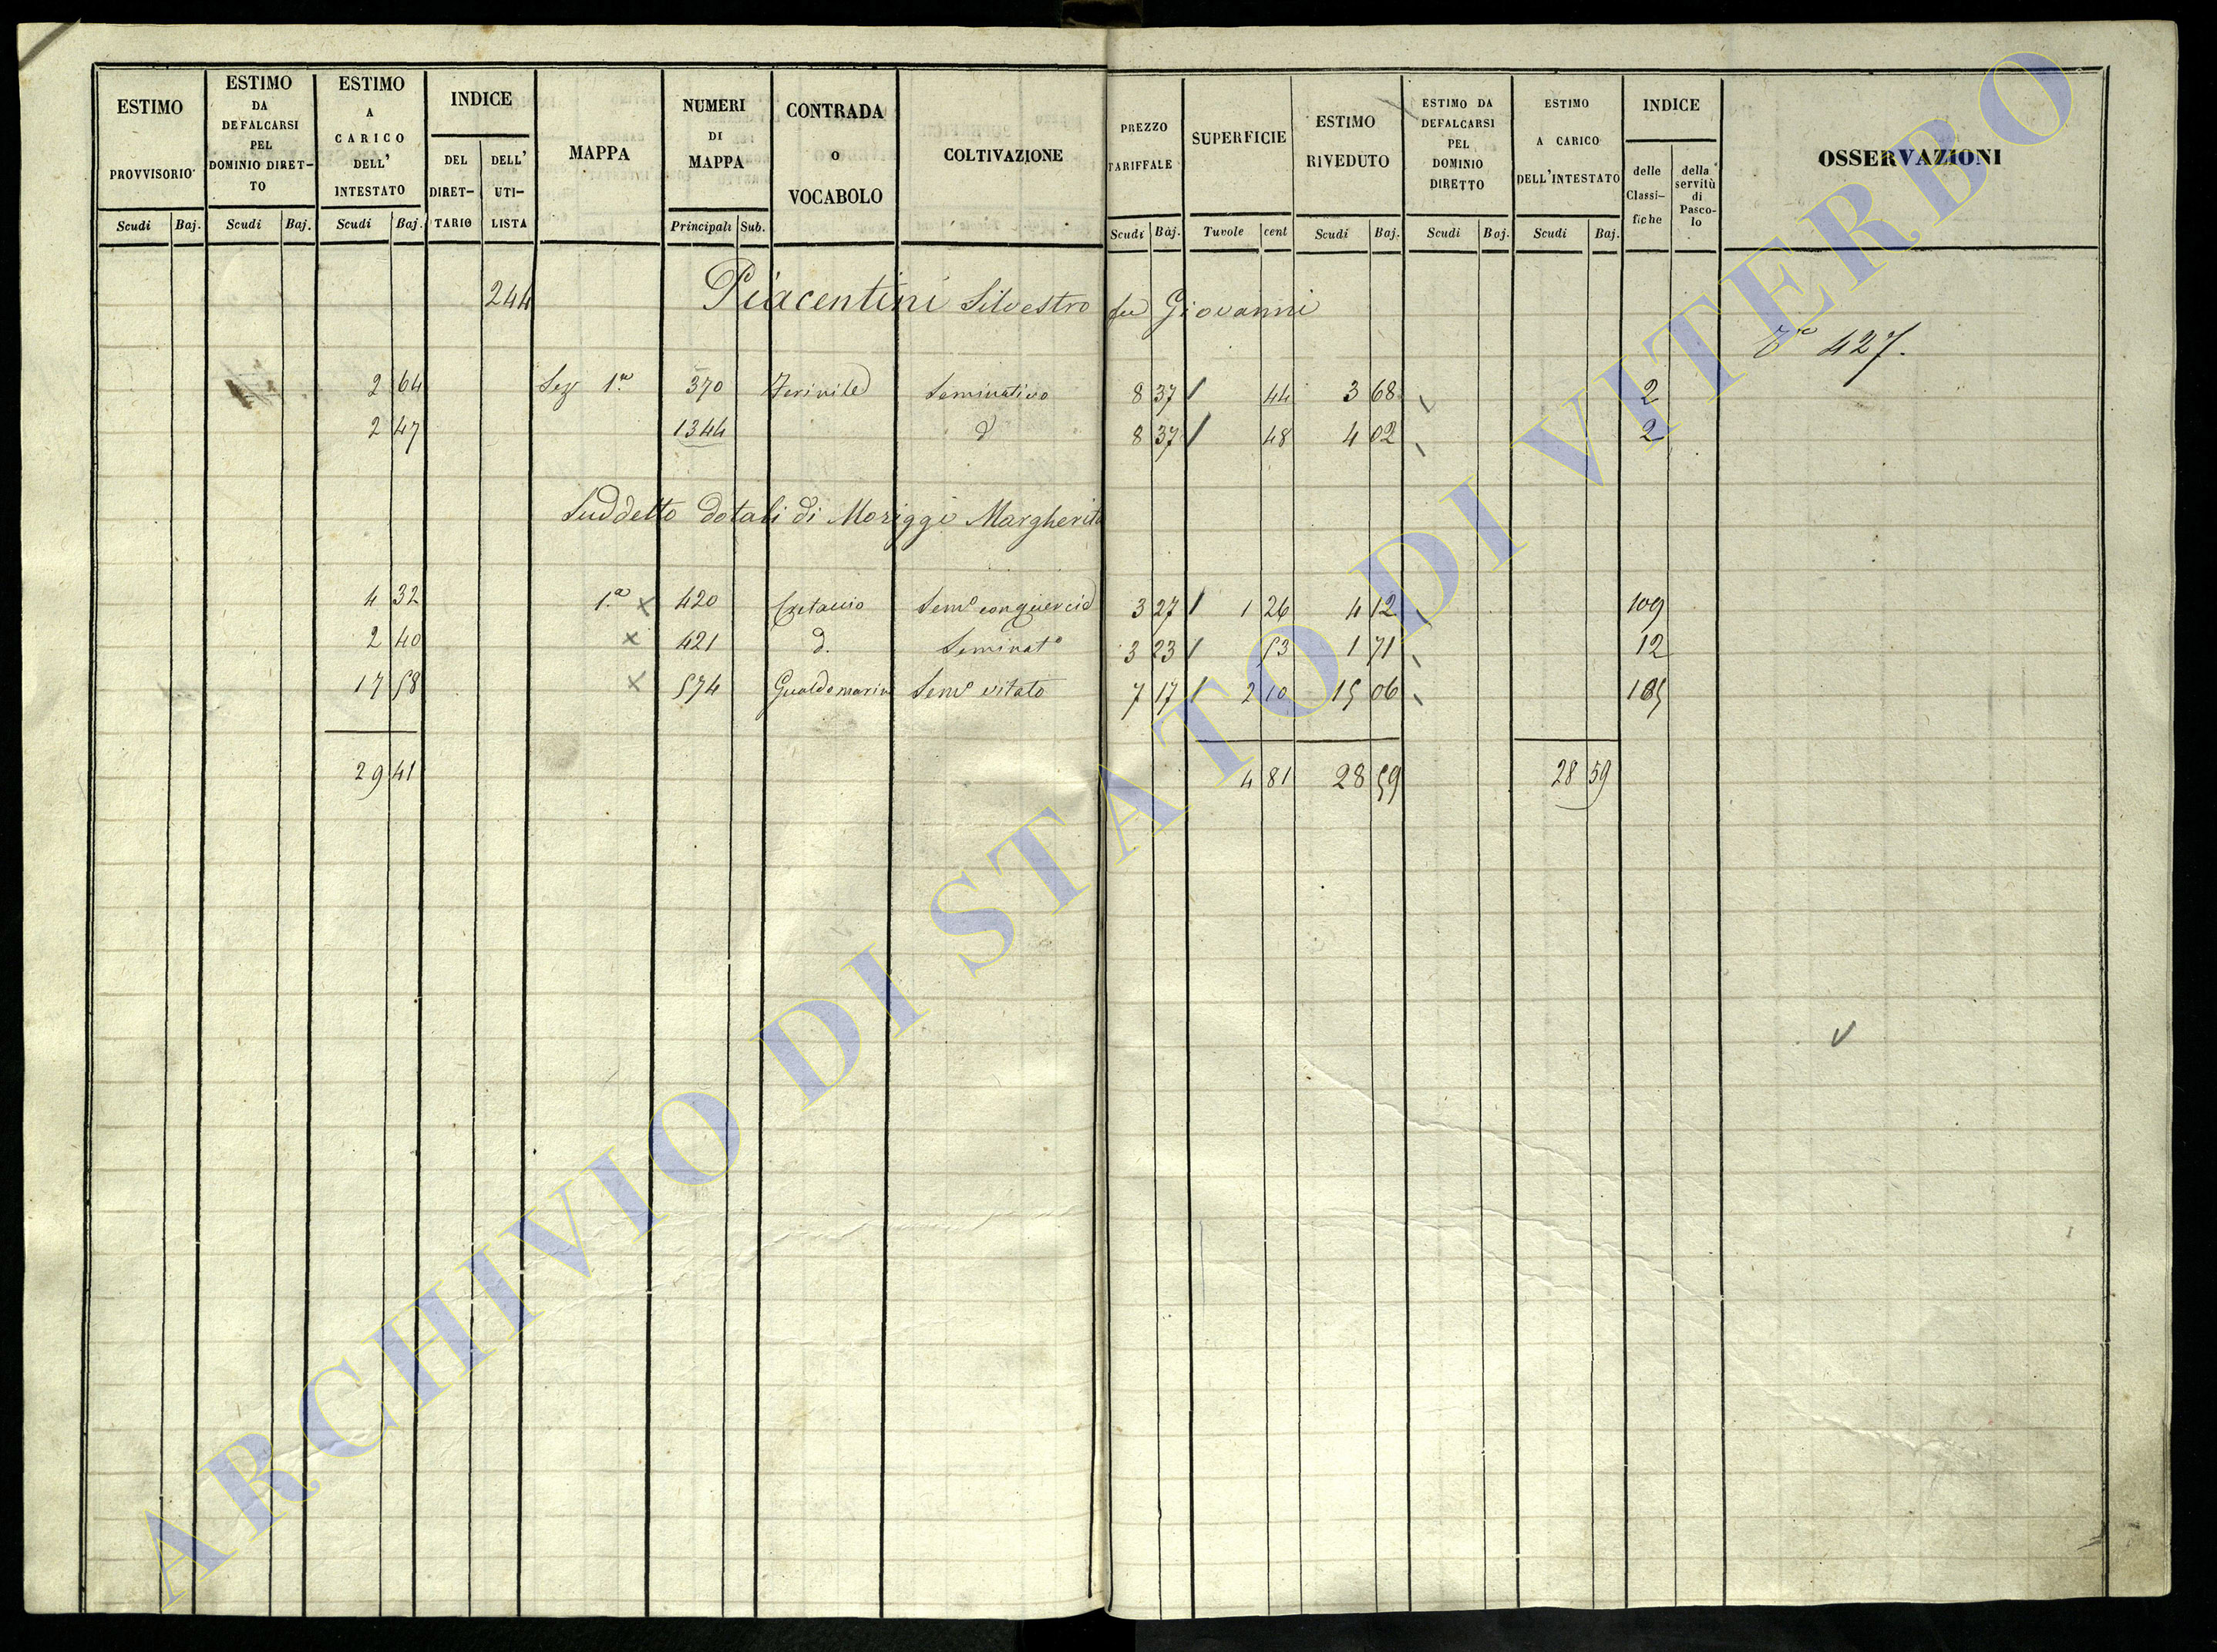 ESTIMO PROVVISORIO Scudi Baj.
ESTIMO DA DEFALCARSI PEL DOMINIO DIRETTO Scudi Baj.
ESTIMO A CARICO DELL' INTESTATO Scudi Baj.
INDICE DEL DIRETTARIO DELL' UTILISTA
MAPPA
NUMERI DI MAPPA Principali Sub.
CONTRADA o VOCABOLO
COLTIVAZIONE
PREZZO TARIFFALE Scudi Baj.
SUPERFICIE Tavole cent
ESTIMO RIVEDUTO Scudi Baj.
ESTIMO DA DEFALCARSI PEL DOMINIO DIRETTO Scudi Baj.
ESTIMO A CARICO DELL'INTESTATO Scudi Baj.
INDICE delle Classifiche della servitù di Pascolo
OSSERVAZIONI
244 Piacentini Silvestro fu Giovanni
427.
2 64 Sez 1.a 370 Seminativo 8 37 44 3 68 2
2 47 1344 d 8 37 48 4 02 2
Suddetto dotali di Moriggi Margherita
4 32 1.a x 420 Semo conquercid 3 27 1 26 4 12 109
2 40 x 421 d. Seminato 3 23 53 1 71 12
17 58 x 574 Gualdomarin Semo vitato 7 17 2 10 15 06 185
29 41 4 81 28 59 28 59
ARCHIVIO DI STATO DI VITERBO